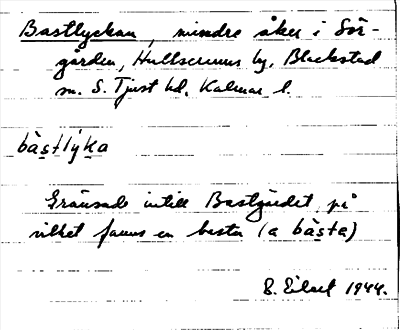 Bastlyckan, mindre åker i Sör-
gården, Hullserums by, Blackstad
sn. S. Tjust hd, Kalmar l.
bàstlýka
Gränsade intill Bastgärdet, på
vilket fanns en basta (a bàsta)
E. Eilert 1944.